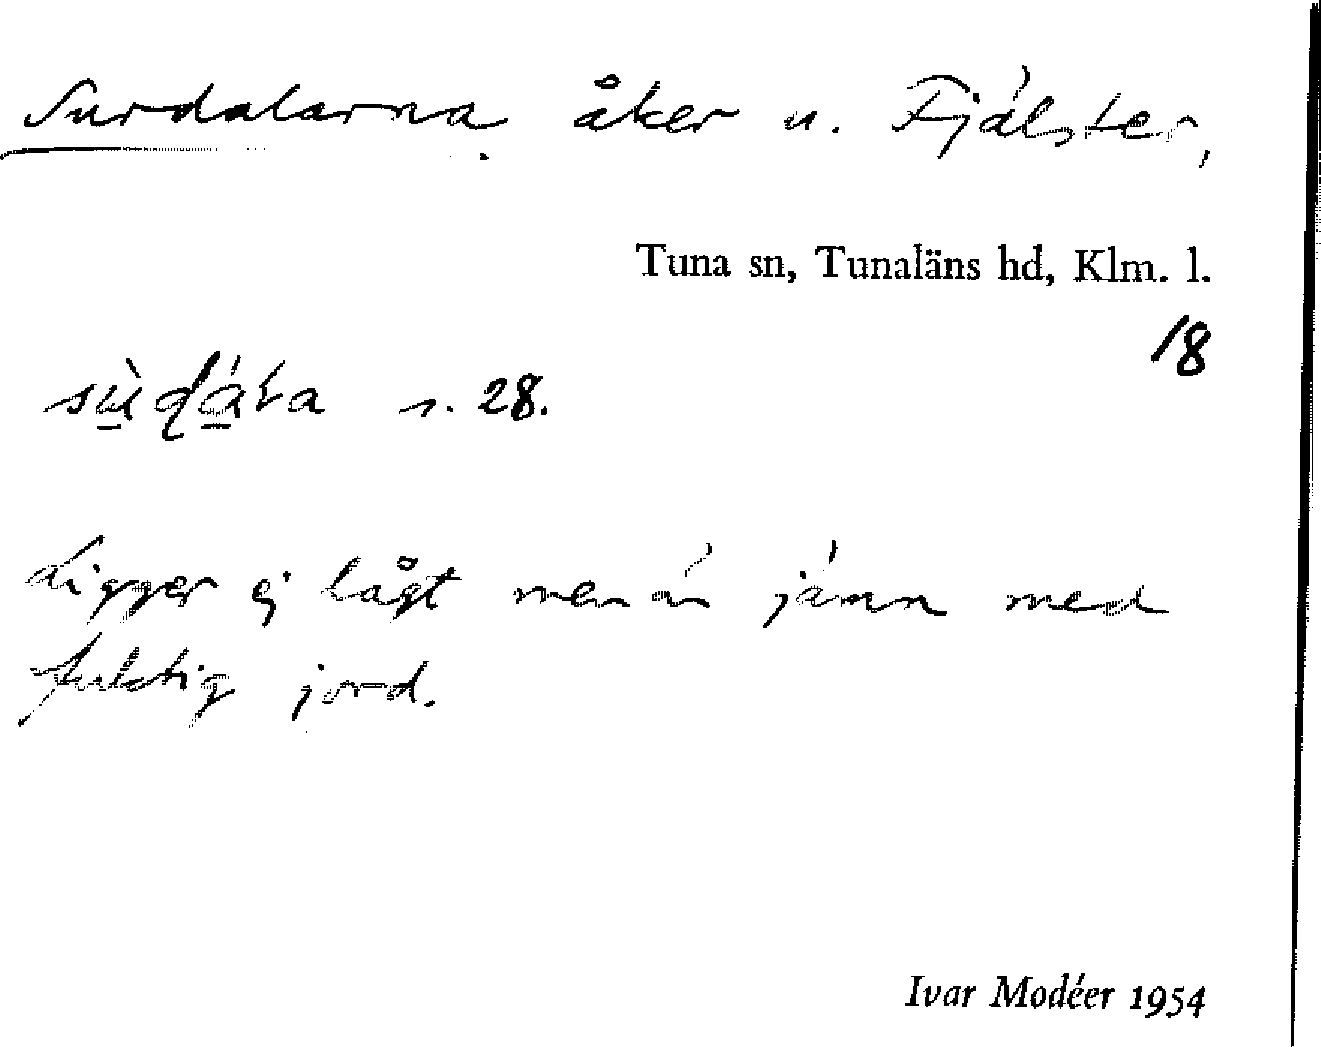 Surdalarna åker u. Fjälster,
Tuna sn, Tunaläns hd, Klm. l.
18
s. 28.
Ligger ej lågt men är jämn med
fuktig jord.
Ivar Modéer 1954